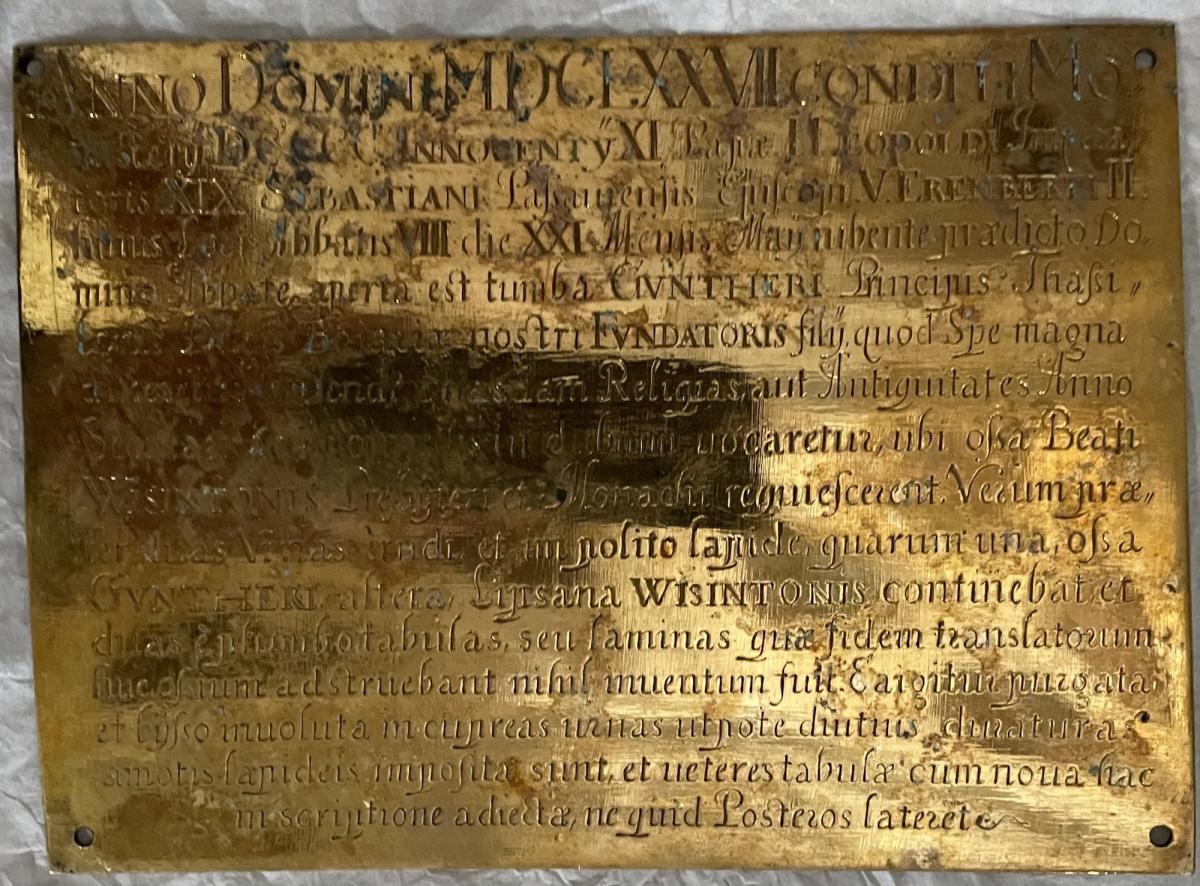 ANNO DOMINI MDCLXXVII CONDITI MO-
DCCCC INNOCENTY XI Papæ I LEOPOLDI Impera
toris XIX SEBASTIANI Passauiensis Episcopi V. ERENBERTI II.
huius Loci Abbatis VIII die XXI Mensis Maÿ iubente prædicto Do,
mino Abbate, aperta est tumba GVNTHERI Principis Thassi„
nostri FVNDATORIS filÿ, quod Spe magna
quasdam Religias, aut Antiquitates Anno
in dubium uocaretur, ubi ossa Beati
WISINTONIS Monachi requiescerent. Verum præ„
ter duas Vrnas et impolito lapide, quarum una, ossa
GVNTHERI altera, Lipsana WISINTONIS continebat, et
duas è plumbo tabulas, seu laminas quæ fidem translatorum
huc ossium adstruebant nihil inuentum fuit. Ea igitur purgata,
et bysso inuoluta in cupreas urnas utpote diutius duraturas
amotis lapideis imposita sunt, et ueteres tabulæ cum noua hac
inscriptione adiectæ, ne quid Posteros lateret